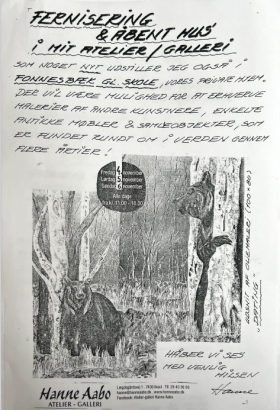 FERNISERING
& ÅBENT HUS
i MIT ATELIER/GALLERI
SOM NOGET NYT UDSTILLER JEG OGSÅ i
FONNESBÆK GL. SKOLE, VORES PRIVATE HJEM.
DER VIL VÆRE MULIGHED FOR AT ERHVERVE
MALERIER AF ANDRE KUNSTNERE, ENKELTE
ANTIKKE MØBLER & SAMLEOBJEKTER, SOM
ER FUNDET RUNDT OM i VERDEN GENNEM
FLERE ÅRTIER!
Fredag 4. november
Lørdag 5. november
Søndag 6. november
Alle dage
fra kl. 11.00 - 18.00
UDSNIT AF OLIEMALERI (100 x 80)
"DATING"
HÅBER VI SES
MED VENLIG
HILSEN
Hanne
Hanne Aabo
ATELIER - GALLERI